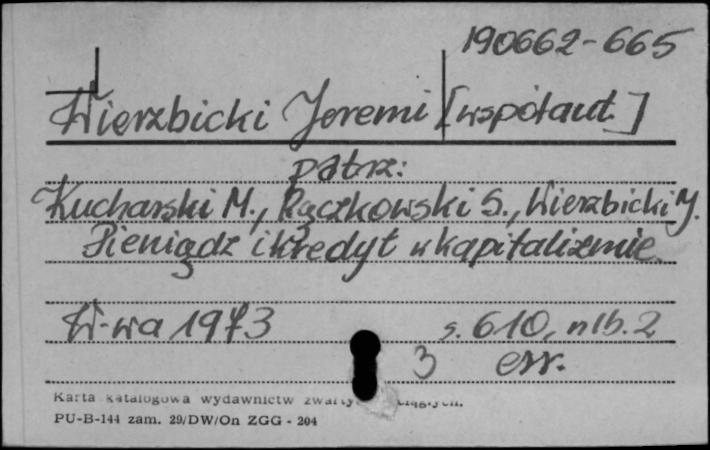 190662-665
Wierzbicki Jeremi [współaut.]
patrz:
Kucharski M., Rączkowski S., Wierzbicki J.
Pieniądz i kredyt w kapitalizmie.
W-wa 1973 s. 610, nlb. 2
3 err.
Karta katalogowa wydawnictw
PU-B-144 zam. 29/DW/On ZGG - 204